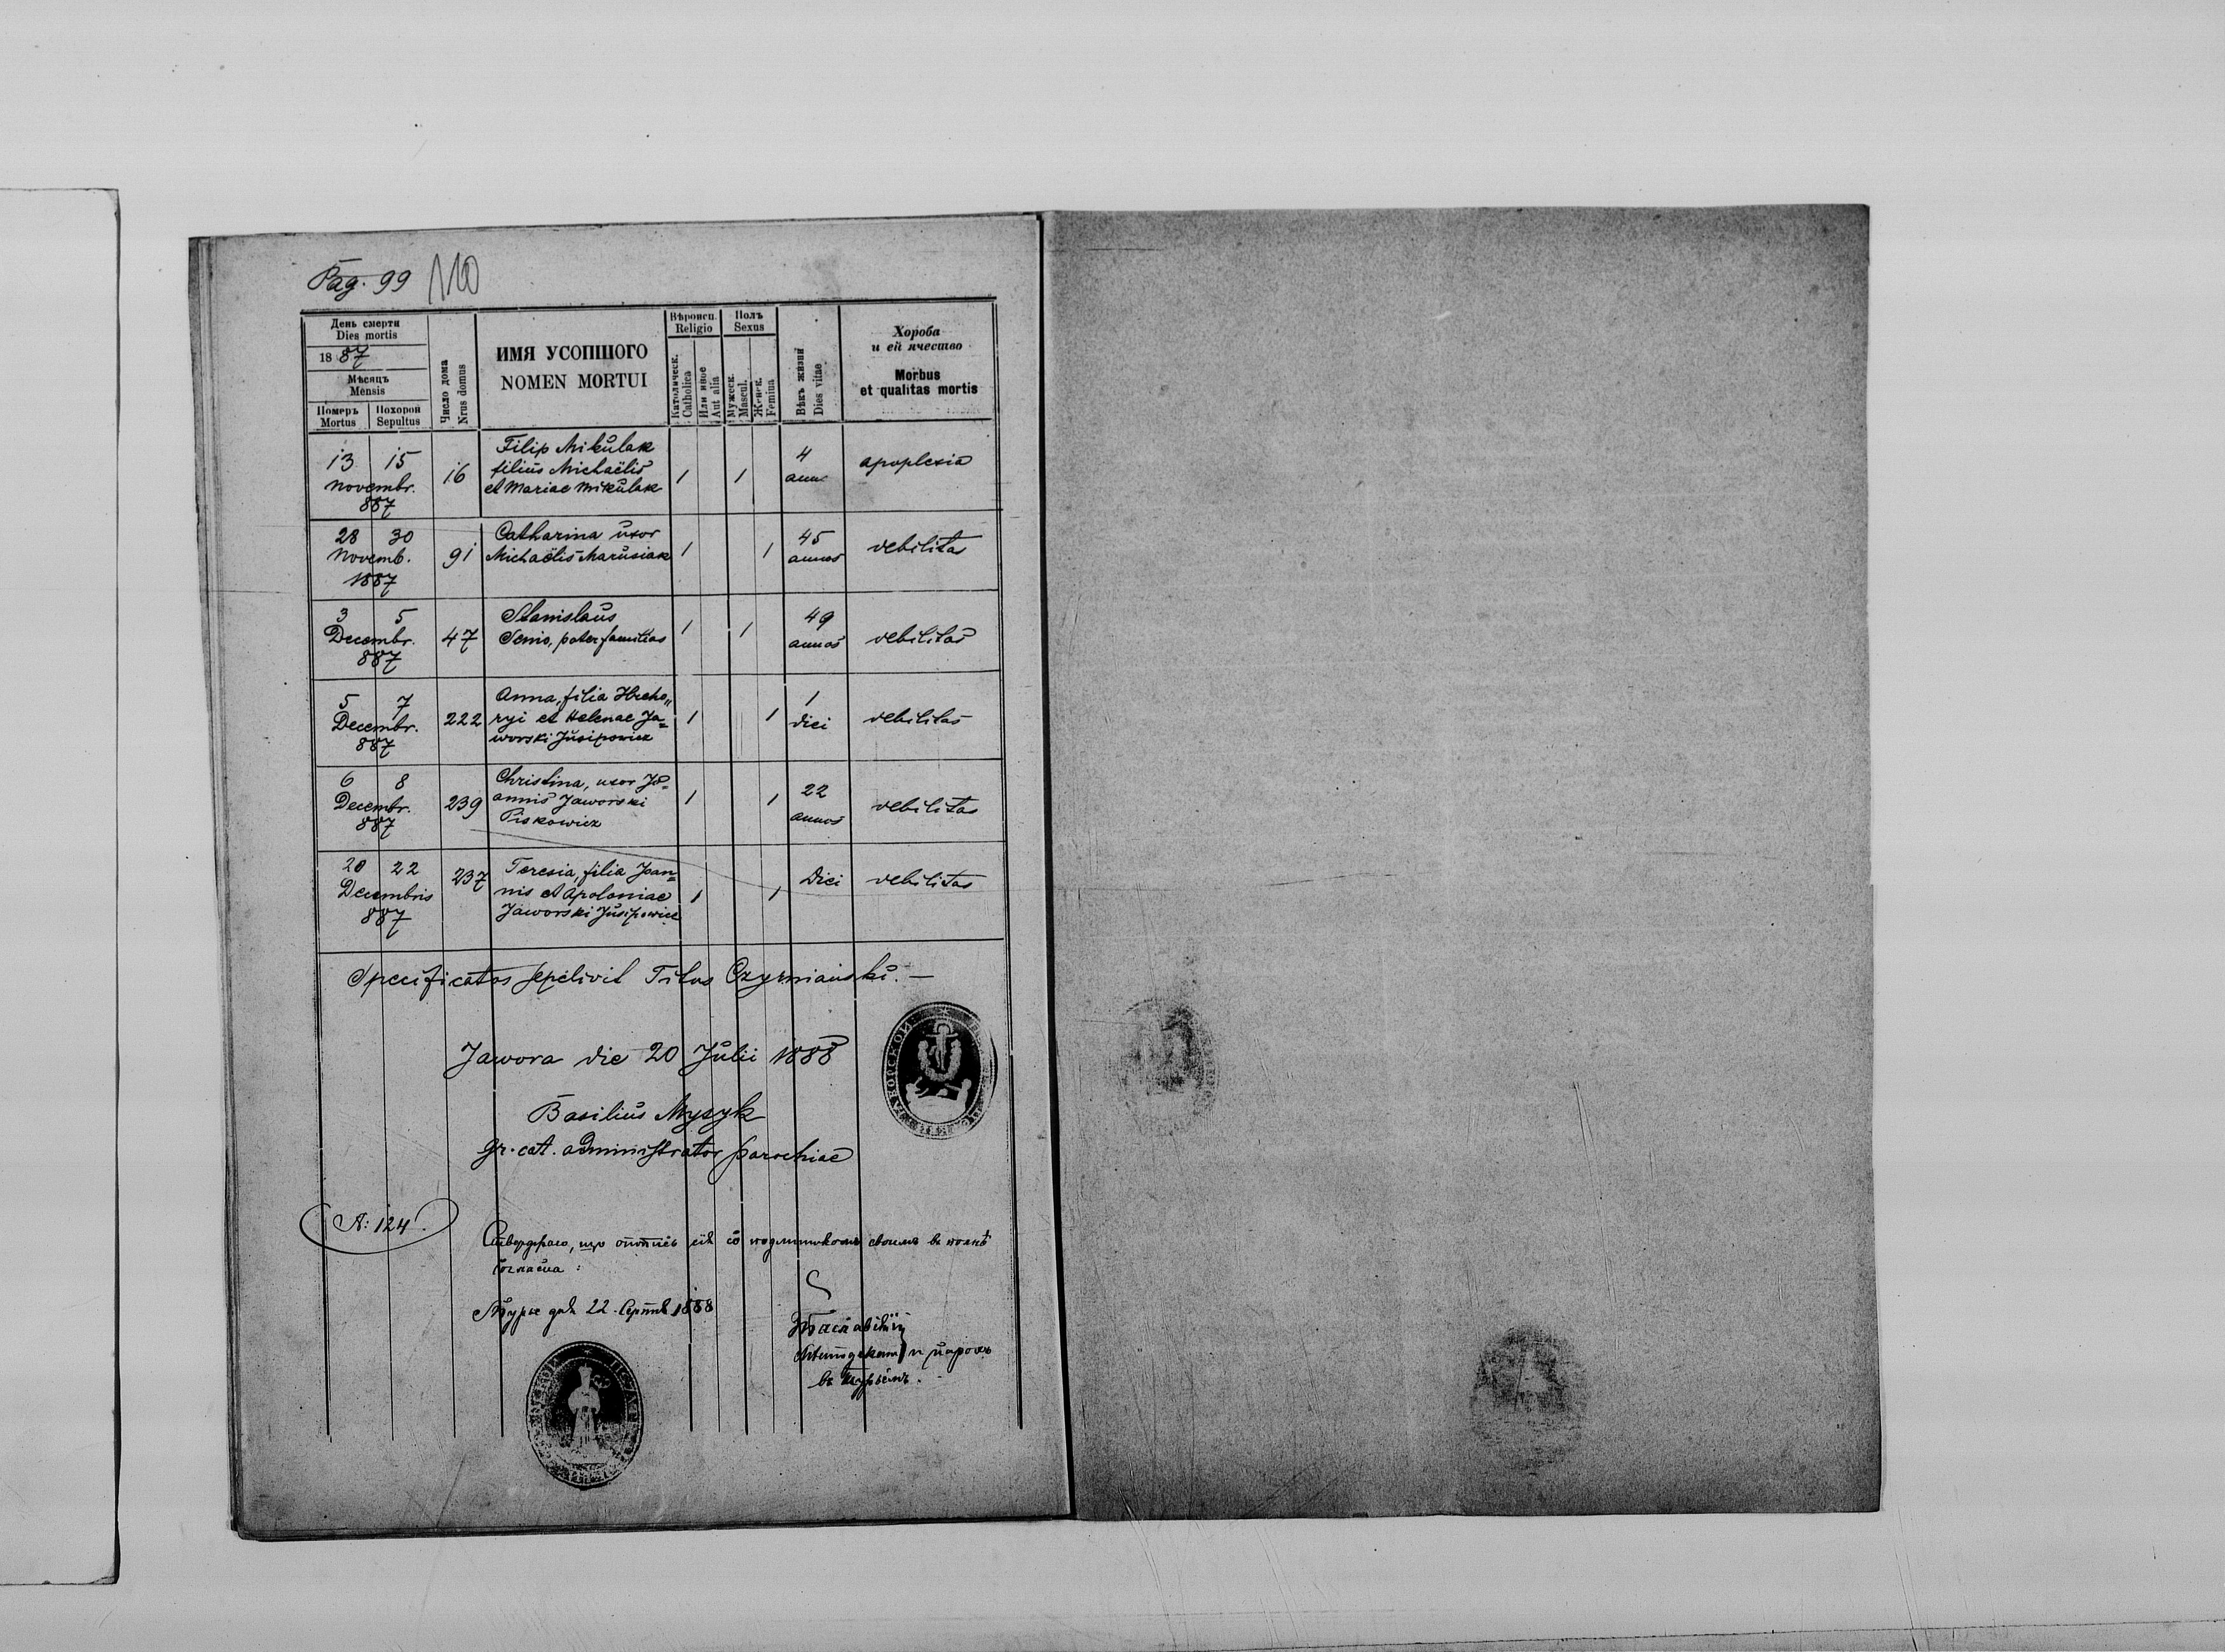 Pag. 99 110
День смерти
Dies mortis
1887
Мѣсяцъ
Mensis
Померъ Похорон
Mortus Sepultus
Число дома
Nrus domus
ИМЯ УСОПШОГО
NOMEN MORTUI
Вѣроисп.
Religio
Католическ.
Catholica
Или иное
Aut alia
Полъ
Sexus
Мужеск.
Mascul.
Женск.
Femina
Вѣкъ жизни
Dies vitae
Хороба
и ей ячество
Morbus
et qualitas mortis
13 15
Novembr.
887
16
Filip Mikulak
filius Michaëlis
et Mariae Mikulak
1 1
4
ann
apoplexia
28 30
Novemb.
1887
91
Catharina uxor
Michaëlis Marusiak
1 1
45
annos
debilitas
3 5
Decembr.
887
47
Stanislaus
Senio, pater familias
1 1
49
annos
debilitas
5 7
Decembr.
887
222
Anna, filia Hreho„
ryi et Helenae Ja=
worski Jusipowicz
1 1
1
diei
debilitas
6 8
Decembr.
887
239
Christina, uxor Jo=
annis Jaworski
Piskowicz
1 1
22
annos
debilitas
20 22
Decembris
887
237
Teresia, filia Joan=
nis et Apoloniae
Jaworski Jusipowicz
1 1
Diei
debilitas
Specificatos sepelivit Titus Czyrniański. —
Jawora die 20 Julii 1888
Basilius Mysyk
gr. cat. administrator parochiae
A: 124.
що сій со своимъ въ
согласна :
дня 22 1888
и парохъ
въ